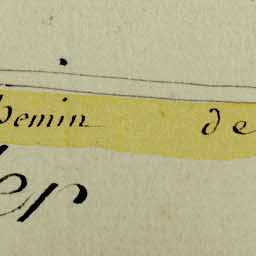 hemin de
er